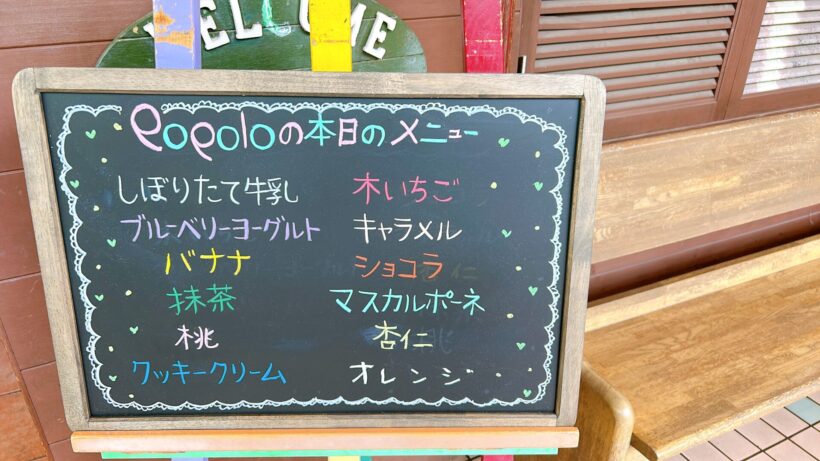 WELCOME
popoloの本日のメニュー
しぼりたて牛乳
ブルーベリーヨーグルト
バナナ
抹茶
桃
クッキークリーム
木いちご
キャラメル
ショコラ
マスカルポーネ
杏仁
オレンジ